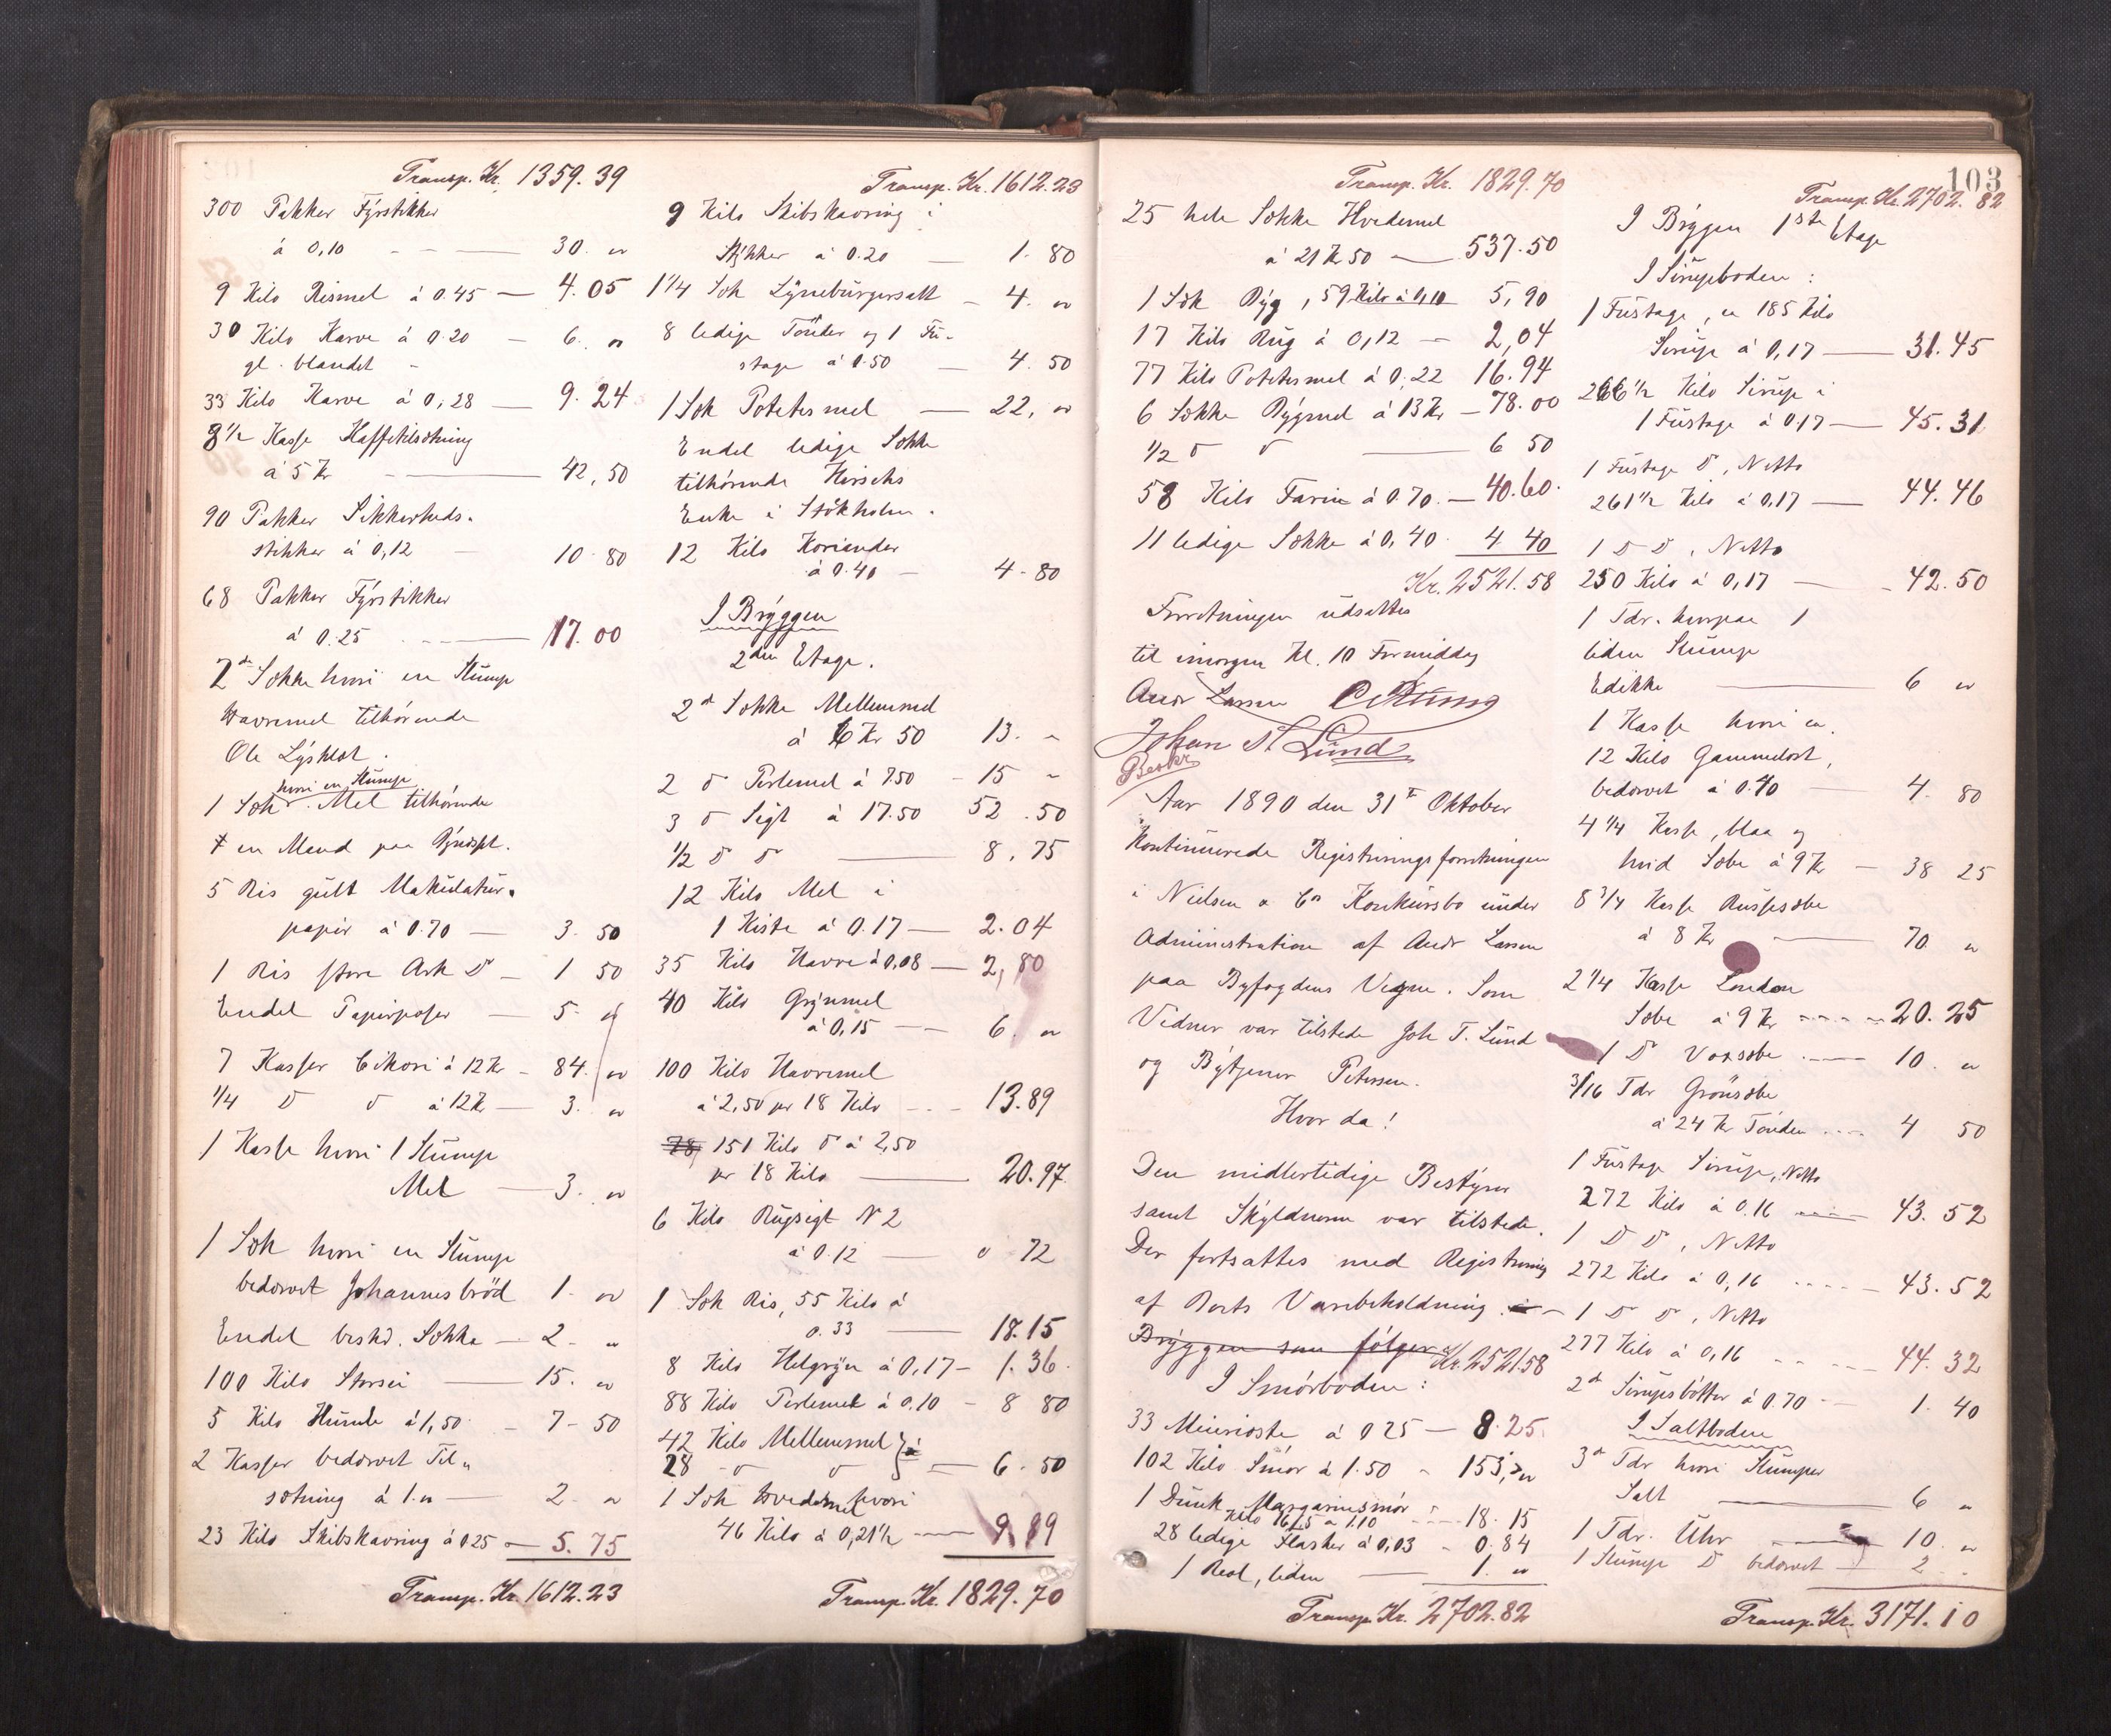 Transp. Kr. 1359.39
300 Pakker Fyrstikker
á 0,10 — 30. "
9 Kilo Rismel á 0.45 — 4.05
30 Kilo Karve á 0.20 — 6. "
gl. blandet
33 Kilo Karve á 0,28 — 9.24
8 1/2 Kasse Kaffetilsætning
á 5 Kr — 42,50
90 Pakker Sikkerheds-
stikker á 0,12 — 10.80
68 Pakker Fyrstikker
á 0.25 — 17.00
2de Sække hvori en Slump
Havremel tilhørende
Ole
hvori en Slump
1 Sæk Mel tilhørende
en Mand paa
5 Ris gult Makulatur-
papir á 0.70 — 3.50
1 Ris store Ark Do — 1 50
Endel Papirposer — 5. "
7 Kasser Cikori á 12 Kr — 84. "
1/4 D o á 12 Kr — 3. "
1 Kasse hvori 1 Slump
Mel — 3. "
1 Sæk hvori en Slump
bedærvet Johannesbrød 1. "
Endel beskd. Sække — 2. "
100 Kilo Storsei — 15. "
5 Kilo Humle á 1,50 — 7.50
2 Kasser bedærvet Til-
sætning á 1." — 2. "
23 Kilo Skibskavring á 0 25 — 5.75
Transp. Kr. 1612.23
Transp. Kr. 1612.23
9 Kilo Skibskavring i
Stykker á 0.20 — 1.80
1 1/4 Sæk Lyneburgersalt — 4. "
8 ledige Tønder og 1 Fu-
stage á 0.50 — 4.50
1 Sæk Potetesmel — 22, "
Endel ledige Sække
tilhørende Hirschs
Enke i Stokholm.
12 Kilo Koriander
á 0.40 — 4.80
I Bryggen
2den Etage.
2de Sække Mellemmel
á 6 Kr 50 13. "
2 D Perlemel á 7.50 — 15 "
3 D Sigt á 17.50 52.50
1/2 D D — 8.75
12 Kilo Mel i
1 Kiste á 0.17 — 2.04
35 Kilo Havre á 0,08 — 2,80
40 Kilo Grynmel
á 0,15 — 6. "
100 Kilo Havremel
á 2,50 pr 18 Kilo — 13.89
78 151 Kilo D á 2,50
pr 18 Kilo — 20.97
6 Kilo Rugsigt N 2
á 0.12 — 0 72
1 Sæk Ris, 55 Kilo á
0.33 — 18.15
8 Kilo Helgryn á 0,17 — 1.36
88 Kilo Perlemel á 0.10 — 8 80
42 Kilo Mellemmel } á
28 D D — 6.50
1 Sæk Hvedemel hvori
46 Kilo á 0,21 1/2 — 9.89
Transp. Kr. 1829.70
103
Transp. Kr. 1829.70
25 hele Sække Hvedemel
á 21 Kr 50 — 537.50
1 Sæk Byg, 59 Kilo á 0,10 5,90
17 Kilo Rug á 0,12 — 2,04
77 Kilo Potetesmel á 0,22 16.94
6 Sække Bygmel á 13 Kr — 78.00
1/2 D D — 6 50
58 Kilo Farin á 0.70 — 40.60
11 ledige Sække á 0,40 4 40
Kr. 2521.58
Forretningen udsattes
til imorgen Kl. 10 Formiddag
Andr Larsen
Johan T. Lund
Beskr
Aar 1890 den 31te Oktober
kontinuerede Registreringsforretningen
i Nielsen & Co Konkursbo under
Administration af Andr Larsen
paa Byfogdens Vegne. Som
Vidner var tilstede Joh T. Lund
og Bytjener Petersen.
Hvor da!
Den midlertidige Bestyrer
samt Skyldneren var tilstede.
Der fortsattes med Registrering
af Boets Varebeholdning i
Bryggen som følger Kr. 2521.58
I Smørboden:
33 Meieioste á 0 25 — 8.25
102 Kilo Smør á 1.50 — 153, "
1 Dunk Margarinsmør
Kilo 16,5 á 1.10 — 18.15
28 ledige Flasker á 0,03 — 0.84
1 Reol, liden — 1. "
Transp. Kr. 2702.82
Transp. Kr. 2702.82
I Bryggen 1ste Etage
I Sirupsboden:
1 Fustage, ca 185 Kilo
Sirup á 0,17 — 31.45
266 1/2 Kilo Sirup i
1 Fustage á 0,17 — 45.31
1 Fustage D, Netto
261 1/2 Kilo á 0,17 — 44.46
1 D D, Netto
250 Kilo á 0,17 — 42.50
1 Tdr. hvorpaa 1
liden Slump
Edikke — 6 "
1 Kasse hvori ca.
12 Kilo Gammelost,
bedærvet á 0.40 — 4.80
4 1/4 Kasse, blaa og
hvid Sæbe á 9 Kr — 38 25
8 3/4 Kasse Russesæbe
á 8 Kr — 70 "
2 1/4 Kasse London
Sæbe á 9 Kr — 20.25
1 D Voxsæbe — 10. "
3/16 Tdr Grønsæbe
á 24 Kr Tønden — 4 50
1 Fustage Sirup, Netto
272 Kilo á 0.16 — 43.52
1 D D, Netto
272 Kilo á 0,16 — 43.52
1 D D, Netto
277 Kilo á 0,16 — 44.32
2de Sirupsbøtter á 0.70 — 1.40
I Saltboden
3de Tdr hvori Slumper
Salt — 6 "
1 Tdr. Uhr — 10. "
1 Slump D bedærvet — 2 "
Transp. Kr. 3171.10